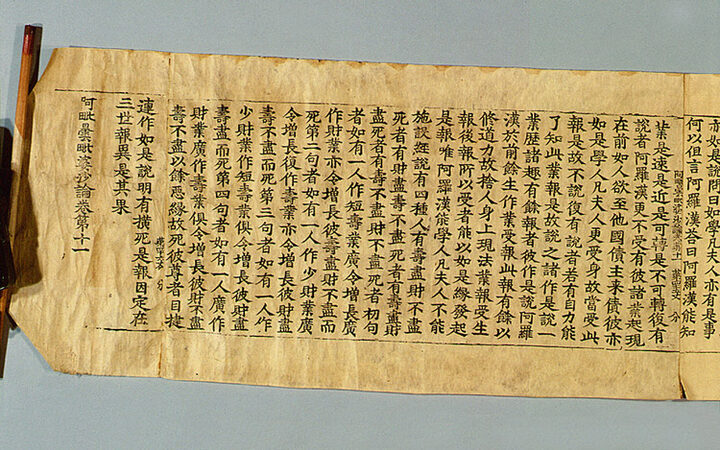 亦如是說問曰如學凡夫人亦有是事
何以但言阿羅漢荅曰阿羅漢能知
阿毗曇毗婆沙論第十一
業是速是近是可轉是不可轉復有
說者阿羅漢更不受有彼諸業起現
在前如人欲至他國債主来債彼亦
如是學人凡夫人更受身故當受此
報是故不說復有說者若有自力能
了知此業報是故說之諸作是說一
業歷諸趣有餘報者彼作是說阿羅
漢於前餘生作業受報此報有餘以
修道力故捨人身上現法業報受生
報後報所以受者能以如是緣發起
是報唯阿羅漢能學人凡夫人不能
施設經說有四種人有壽盡財不盡
死者有財盡壽不盡死者有壽盡財
盡死者有壽不盡財不盡死者初句
者如有一人作短壽業廣令增長廣
作財業亦令增長彼壽盡財不盡而
死第二句者如有一人作少財業廣
令增長復作壽業亦令增長彼財盡
壽不盡而死第三句者如有一人作
少財業作短壽業俱令增長彼財盡
壽盡而死第四句者如有一人廣作
財業廣作壽業俱令增長彼財不盡
壽不盡以餘惡緣故死彼尊者目揵
連作如是說明有橫死是報因定在
三世報異是其果
阿毗曇毗婆沙論卷第十一